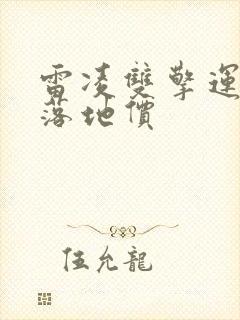 雷凌雙擎運
落地價
伍允龍